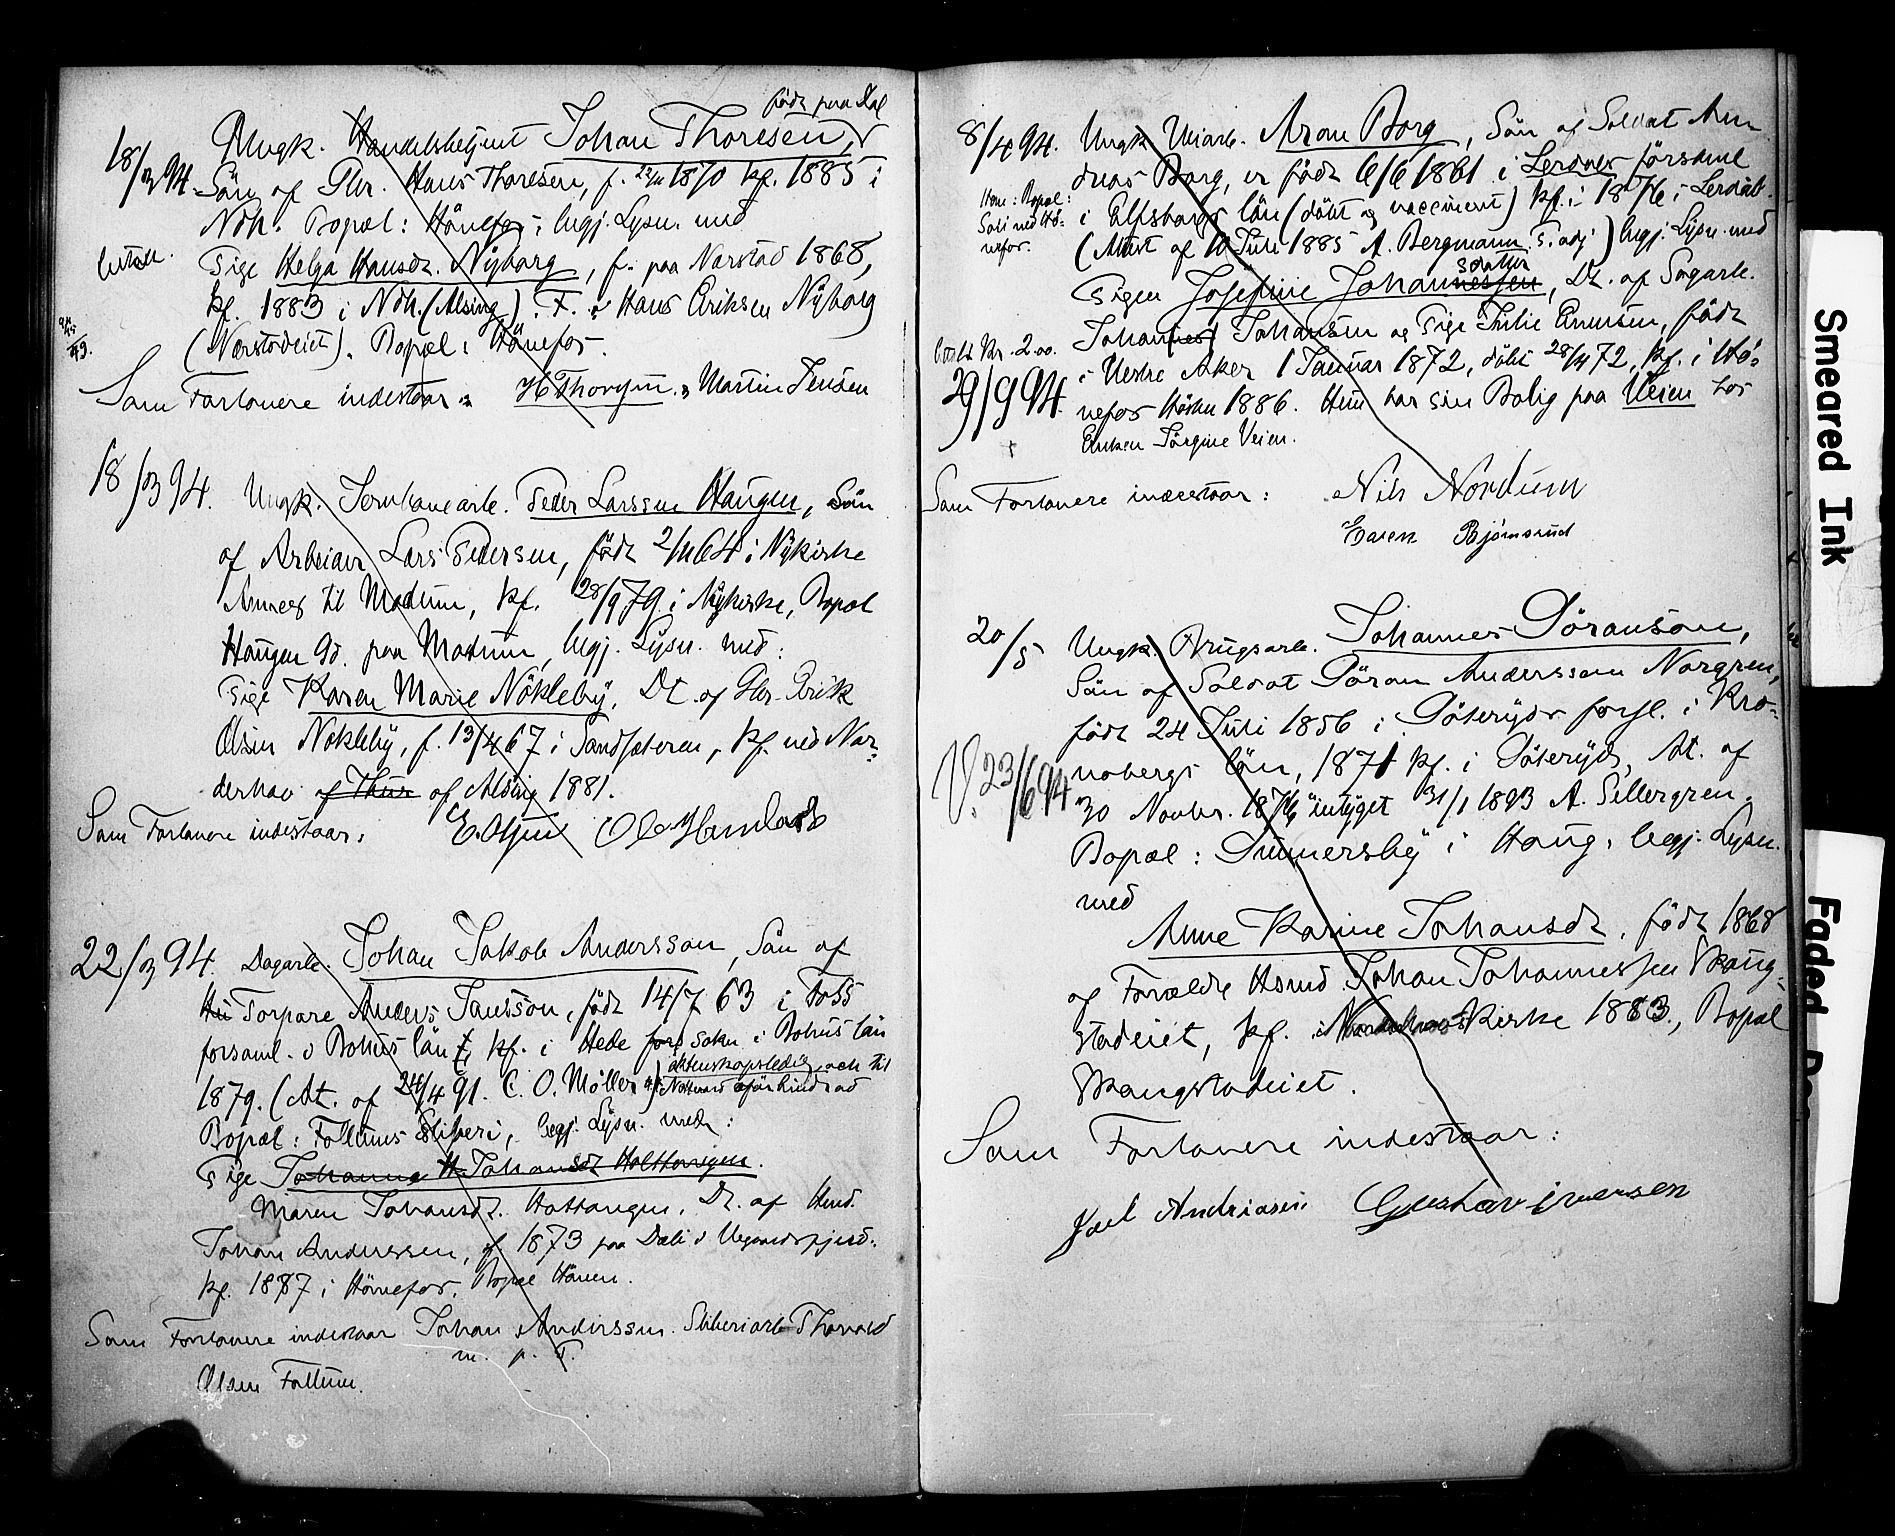 født paa Dal
18/3 94. Ungk. Handelsbetjent Johan Thoresen,
Sön af Gbr. Hans Thoresen, f. 1870 kf. 1885 i
Ndh. Bopæl: Hönefos; begj. Lysn. med
betalt. Pige Helga Hansdr. Nyborg, f. paa Narstad 1868,
kf. 1883 i Ndh. (Alsing). F. : Hans Eriksen Nyborg
(Narstadeiet). Bopæl: Hönefos.
Som Forlovere indestaar: Martin Jensen
18/3 94. Ungk. Jernbanearb. Peder Larssen Haugen, Sön
af Arbeider Lars Pedersen, födt 2/11 64 i Nykirke
Annex til Modum, kf. 28/9 79 i Nykirke, Bopæl
Haugen Gd. paa Modum, begj. Lysn. med:
Pige Karen Marie Nökleby, Dt. af Gbr. Erik
Olsen Nökleby, f. 13/4 67 i Sandsæteren, kf. ved Nor-
derhov af Thur af Alsing 1881.
Som Forlovere indestaar:
22/3 94. Dagarb. Johan Jakob Andersson, Sön af
Hu Torpare Anders Jansson, födt 14/7 63 i Foss
forsaml. i Bohus län, kf. i Hede fors Sokn i Bohus län
1879. (At. af 24/4 91. C. O. Möller) äktenskapsledig och til
Nattvard oförhindrad
Bopæl: Follums Sliberi, begj. Lysn. med:
Pige Johanne H. Johansdt Holthaugen.
Maren Johansdt. Hattangen. Dt. af Hmd.
Johan Anderssen, f. 1873 paa Dæli i
kf. 1887 i Hönefos. Bopæl Hönen.
Som Forlovere indestaar Johan Anderssen. Sliberiarb Thorvald
m. p. P.
Olsen Follum.
8/4 94. Ungk. Uniarb. Aron Borg, Sön af Soldat An-
dreas Borg, er födt 6/6 1861 i Lerdals församl
Han: Bopæl:
i Elfsborgs län (döbt og vaccineret) kf. i 1876 i Lerdal.
(Attest af 10 Juli 1885 A. Bergmann, P. adj.) begj. Lysn. med
nefos.
sdatter
Pigen Josefine Johannessen, Dt. af Sagarb.
Johan(nes) Johansen og Pige Julie Evensen, födt
betalt Kr. 2.00. i Vestre Aker 1 Januar 1872, döbt 28/4 72, kf. i Hö-
29/9 94. nefos Hösten 1886. Hun har sin Bolig paa Veien hos
Enken Jörgine Veien.
Som Forlovere indestaar: Nils Nordum
Even Bjömsrud
20/5 Ungk. Brugsarb. Johannes Göranson,
Sön af Soldat Göran Anderssom Norgren,
födt 24 Juli 1856 i Göteryds forsl. i Kro-
V. 23/6 94 nobergs län, 1871 kf. i Göteryds, At. af
30 Novbr. 1876 intyget 31/1 1893 A. Sellergren.
Bopæl: Gummersby i Haug, begj. Lysn.
med
Anne Karine Johansdt, födt 1868
af Forældre Hsmd. Johan Johannessen Skaug-
stadeiet, kf. i Norderhovs Kirke 1883, Bopæl
Skaugstadeiet.
Som Forlovere indestaar:
Karl Andriasen Gustav Iversen
Smeared Ink
Faded